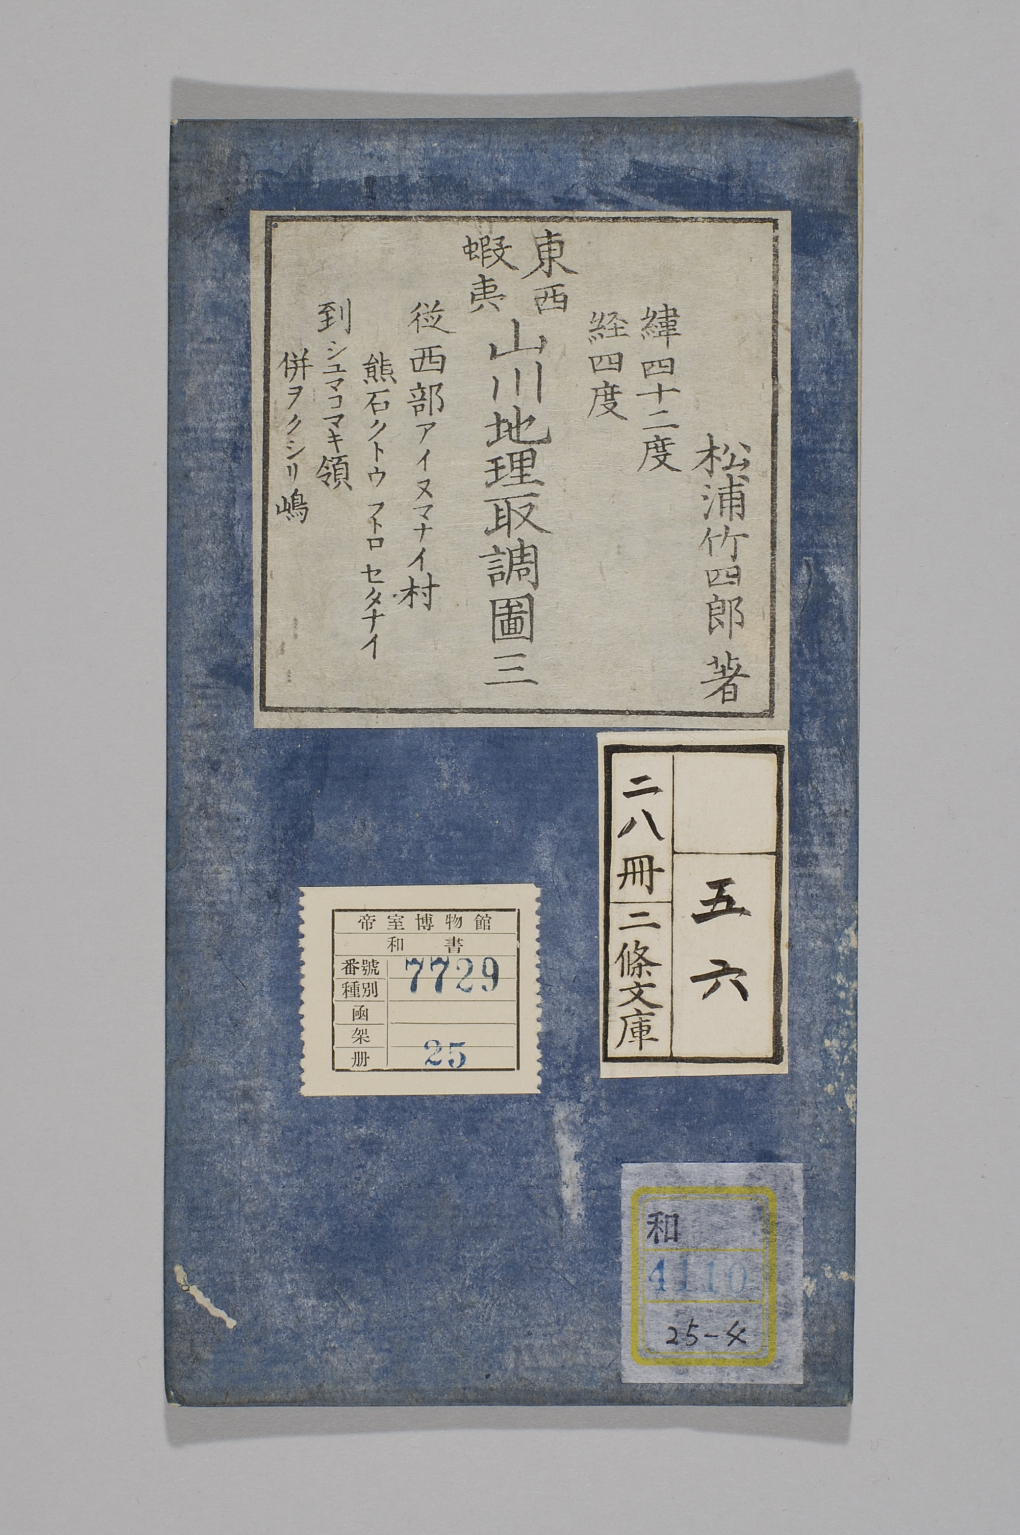 松浦竹四郎 著
緯四十二度
経四度
東西
蝦夷
山川地理取調圖三
従西部アイヌマナイ村
熊石クトウ フトロ セタナイ
到シユマコマキ領
併ヲクシリ嶋
五六
二八冊
二條文庫
帝室博物館
和書
番號 7729
種別
函
架
册 25
和
4110
25-4